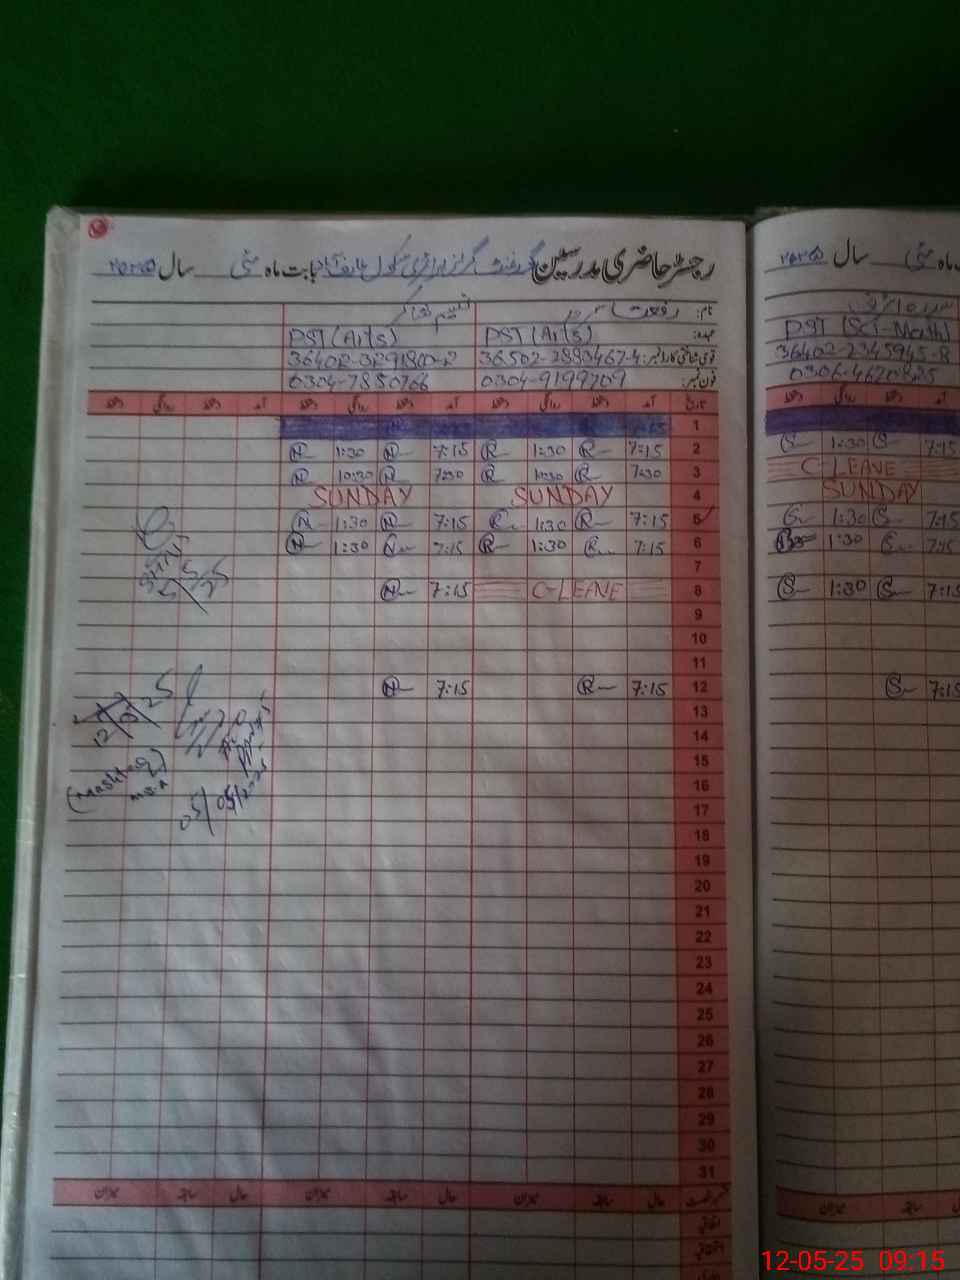 رجسٹر حاضری مدرسین گورنمنٹ گرلز پرائمری سکول بابت ماہ مئی سال ۲۰۲۵
نام: رفعت
عہدہ: PST (Arts) PST (Arts)
قومی شناختی کارڈ نمبر: 36502-2883467-4 36402-3291800-2
فون نمبر: 0304-9199709 0304-7850766
تاریخ آمد دستخط روانگی دستخط آمد دستخط روانگی دستخط آمد دستخط روانگی دستخط
1
2 7:15 R 1:30 R 7:15 N 1:30 N
3 7:30 R 10:30 R 7:30 N 10:30 N
4 SUNDAY SUNDAY
5 7:15 R 1:30 R 7:15 N 1:30 N
6 7:15 R 1:30 R 7:15 N 1:30 N
7
8 C-LEAVE 7:15 N
9
10
11
12 7:15 R 7:15 N
13
14
15
16
17
18
19
20
21
22
23
24
25
26
27
28
29
30
31
حال سابقہ میزان حال سابقہ میزان حال سابقہ میزان
اتفاقی
12/05/25
M.E.A
05/05/2025
ماہ مئی سال ۲۰۲۵
PST (Sci-Math)
36402-2345945-8
0306-4620825
آمد دستخط روانگی دستخط
7:15 S 1:30 S
C-LEAVE
SUNDAY
7:15 S 1:30 S
7:15 S 1:30
7:15 S 1:30 S
7:15 S
سابقہ میزان
12-05-25 09:15